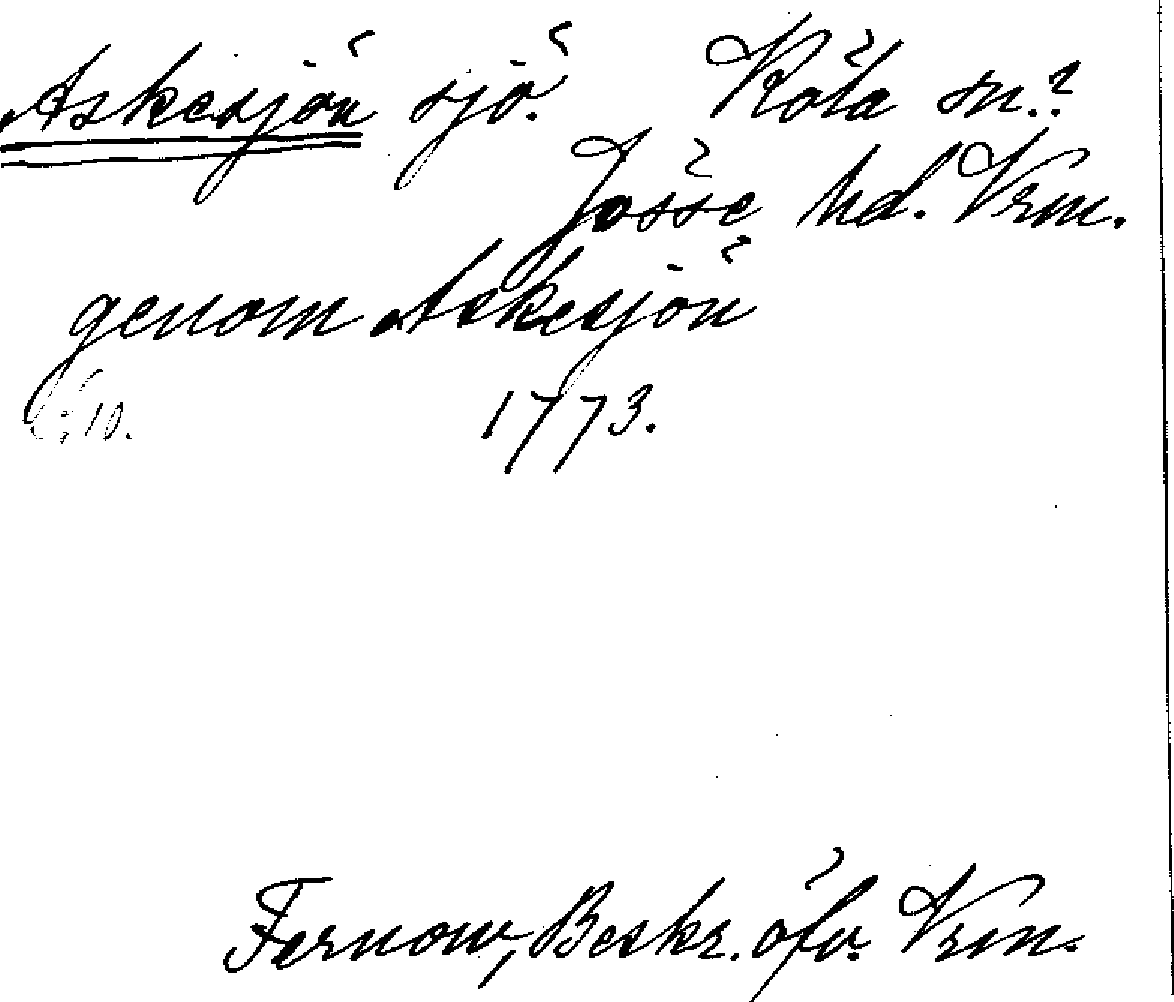 Askesjön sjö. Köla sn.?
Jösse hd. Vrm.
genom Askesjön
1773.
Fernow, Beskr. öfv. Vrm.